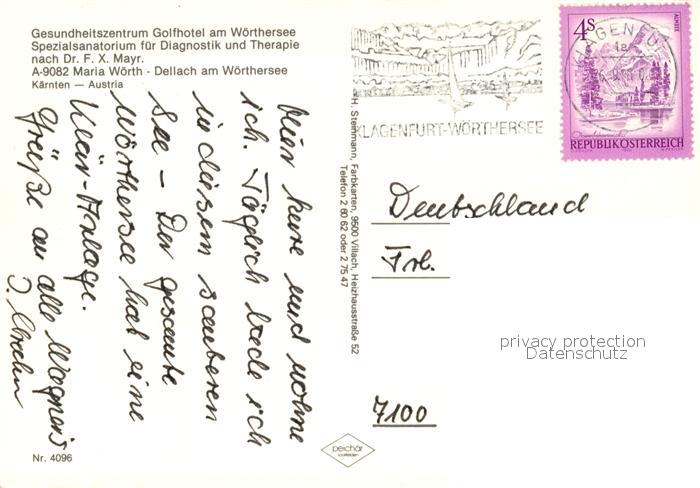 Gesundheitszentrum Golfhotel am Wörthersee
Spezialsanatorium für Diagnostik und Therapie
nach Dr. F. X. Mayr.
A-9082 Maria Wörth - Dellach am Wörthersee
Kärnten — Austria
Hier kure und wohne
ich. Täglich bade ich
in diesem sauberen
See – Der gesamte
Wörthersee hat eine
Klär-Anlage.
Grüße an alle Wagner's
Nr. 4096
H. Steinmann, Farbkarten, 9500 Villach, Heizhausstraße 52
Telefon 2 80 62 oder 2 75 47
KLAGENFURT-WÖRTHERSEE
4S
ALMSEE
REPUBLIK ÖSTERREICH
KLAGENFURT
Deutschland
Frl.
privacy protection
Datenschutz
7100
peichär